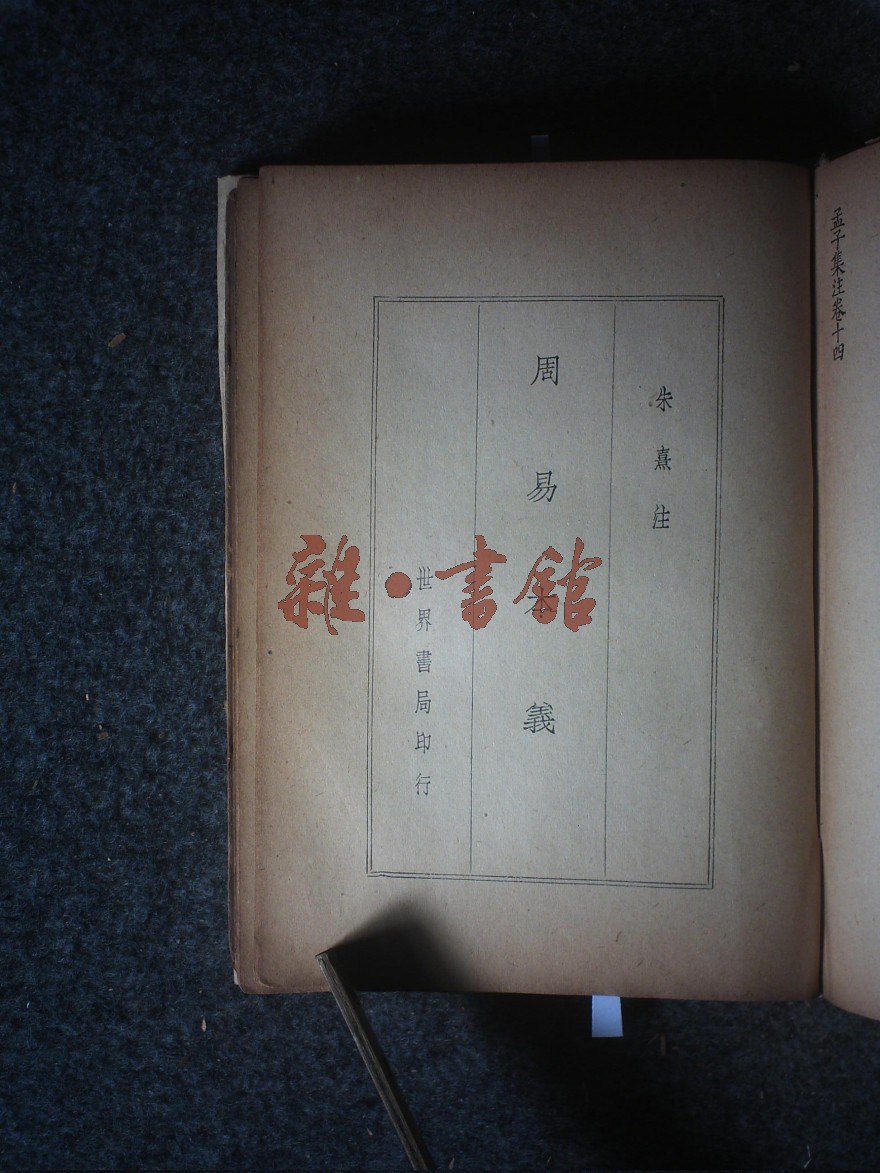 孟子集注卷十四
朱熹注
周易本義
世界書局印行
雜·書館